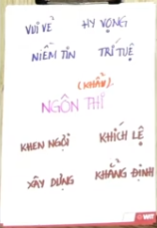 VUI VẺ HY VỌNG
NIỀM TIN TRÍ TUỆ
(KHẨU)
NGÔN THÍ
KHEN NGỢI KHÍCH LỆ
XÂY DỰNG KHẲNG ĐỊNH